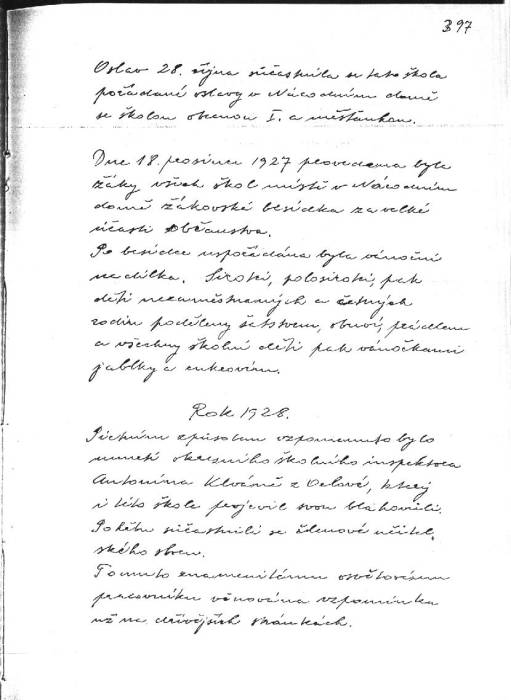 397
Oslav 28. října súčastnila se tato škola
pořádané oslavy v Národním domě
se školou obecnou I. a měšťankou.
Dne 18. prosince 1927 provedena byla
žáky všech škol místí v Národním
domě žákovská besídka za velké
účasti občanstva.
Po besídce uspořádána byla vánoční
nadílka. Sirotci, polosirotci, pak
děti nezaměstnaných a četných
rodin poděleny šatstvem, obuví, prádlem
a všechny školní děti pak vánočkami
jablky a cukrovím.
Rok 1928.
Pietním způsobem vzpomenuto bylo
úmrtí okresního školního inspektora
Antonína Klváně z Orlové, který
i této škole projevil svou blahovůli.
Pohřbu súčastnili se členové učitel
ského sboru.
Tomuto znamenitému osvětovému
pracovníku věnována vzpomínka
už na dřívějších stránkách.